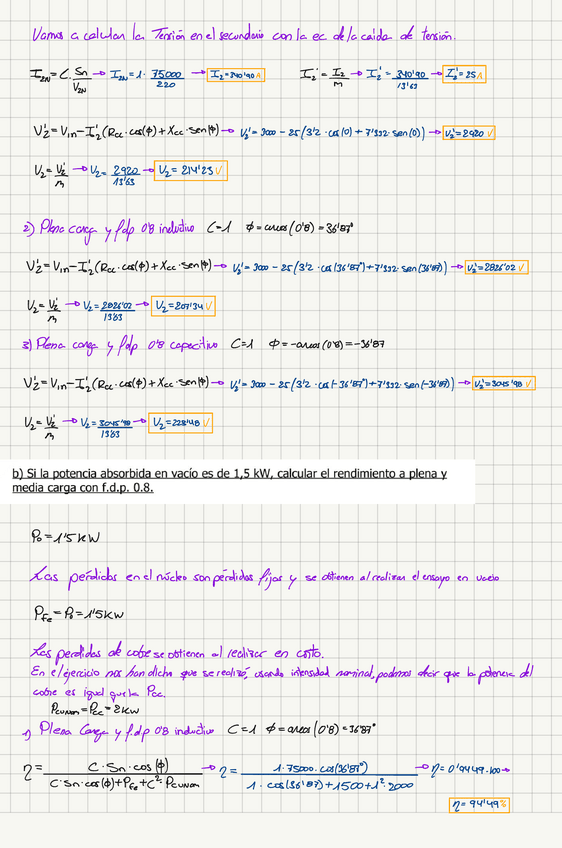 Vamos a calcular la Tensión en el secundario con la ec de la caída de tensión.
I₂N = C · Sn/V₂N → I₂N = 1 · 75000/220 → I₂ = 340'90 A    I₂' = I₂/m → I₂' = 340'90/13'63 → I₂' = 25 A
V₂' = V₁n - I₂' (Rcc · cos(ϕ) + Xcc · sen(ϕ)) → V₂' = 3000 - 25 (3'2 · cos(0) + 7'332 · sen(0)) → V₂' = 2920 V
V₂ = V₂'/m → V₂ = 2920/13'63 → V₂ = 214'23 V
2) Plena carga y fdp 0'8 inductivo C=1 ϕ = arcos(0'8) = 36'87°
V₂' = V₁n - I₂' (Rcc · cos(ϕ) + Xcc · sen(ϕ)) → V₂' = 3000 - 25 (3'2 · cos(36'87°) + 7'332 · sen(36'87)) → V₂' = 2826'02 V
V₂ = V₂'/m → V₂ = 2826'02/13'63 → V₂ = 207'34 V
3) Plena carga y fdp 0'8 capacitivo C=1 ϕ = -arcos(0'8) = -36'87
V₂' = V₁n - I₂' (Rcc · cos(ϕ) + Xcc · sen(ϕ)) → V₂' = 3000 - 25 (3'2 · cos(-36'87°) + 7'332 · sen(-36'87)) → V₂' = 3045'98 V
V₂ = V₂'/m → V₂ = 3045'98/13'63 → V₂ = 223'48 V
b) Si la potencia absorbida en vacío es de 1,5 kW, calcular el rendimiento a plena y
media carga con f.d.p. 0.8.
P₀ = 1'5 kW
Las pérdidas en el núcleo son pérdidas fijas y se obtienen al realizar el ensayo en vacío
PFe = P₀ = 1'5 kW
Las perdidas de cobre se obtienen al realizar en corto.
En el ejercicio nos han dicho que se realizó, usando intensidad nominal, podemos decir que la potencia del
cobre es igual que la Pcc.
Pcunom = Pcc = 2 kW
1) Plena Carga y f.dp 0'8 inductivo C=1 ϕ = arcos(0'8) = 36'87°
η = C · Sn · cos(ϕ) / C · Sn · cos(ϕ) + PFe + C² · Pcunom → η = 1 · 75000 · cos(36'87°) / 1 · cos(36'87) + 1500 + 1² · 2000 → η = 0'9449 · 100 →
η = 94'49 %